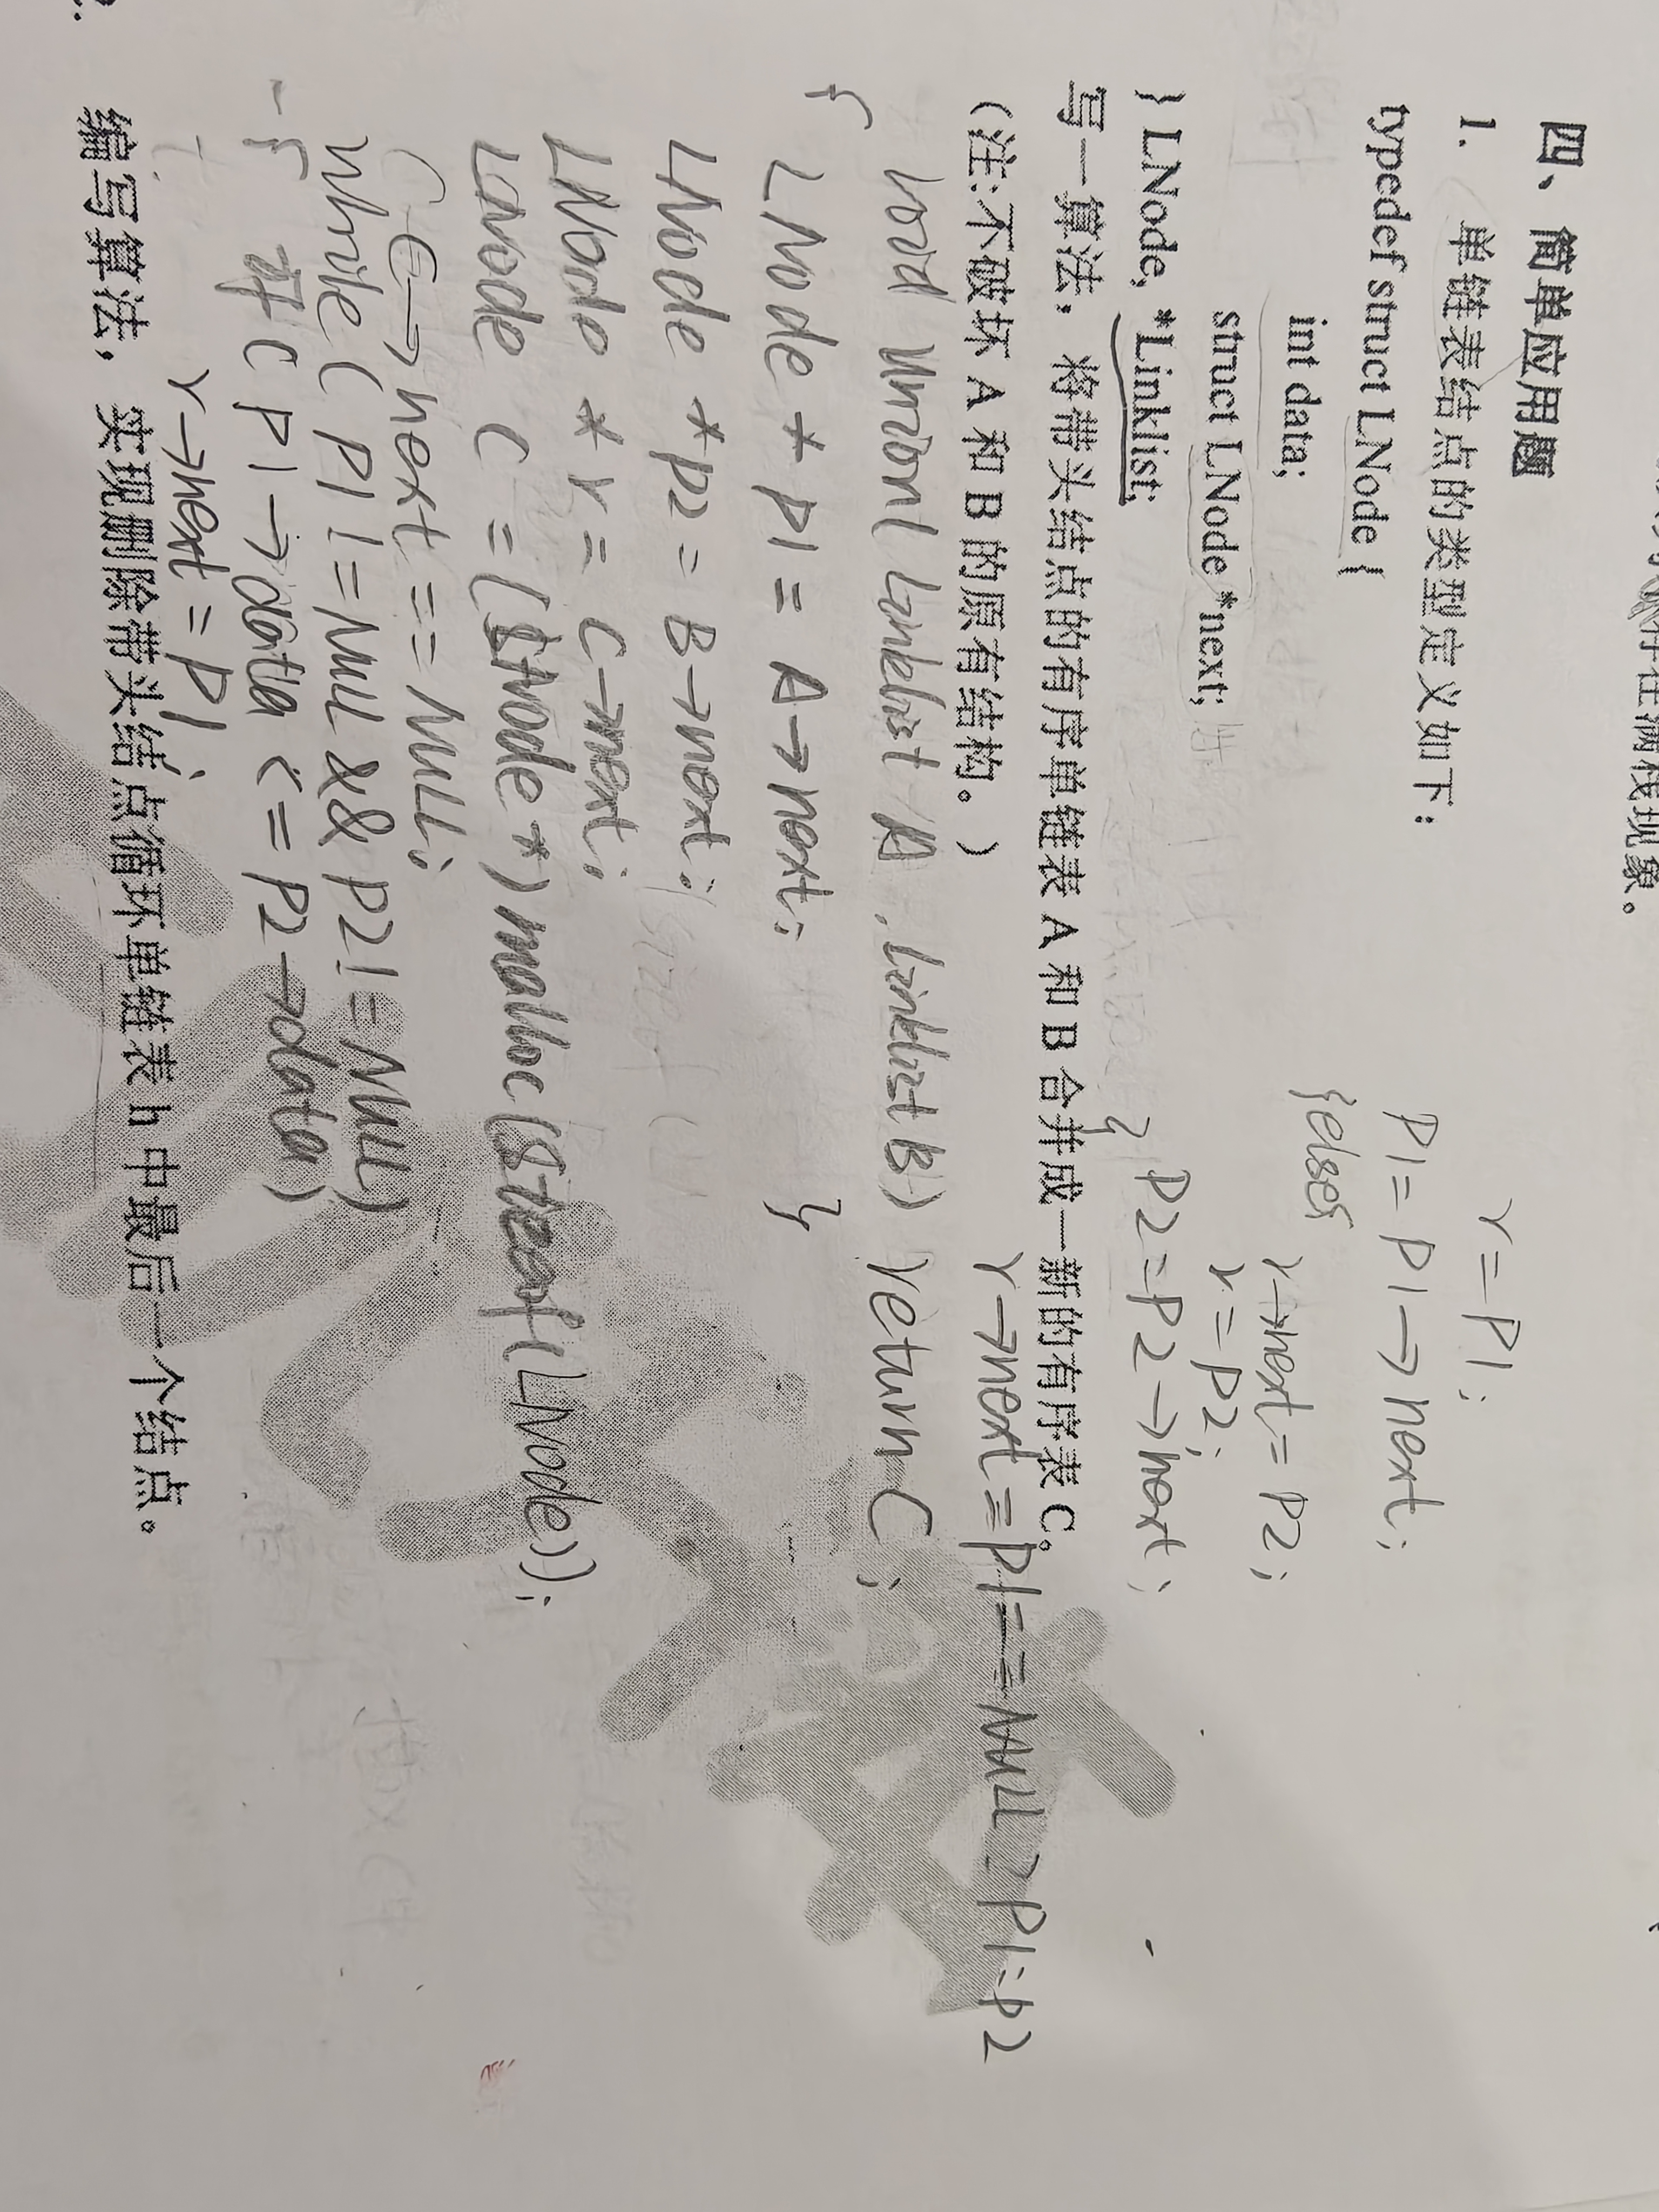 四、简单应用题
1. 单链表结点的类型定义如下:
typedef struct LNode {
int data;
struct LNode *next;
} LNode, *Linklist;
写一算法,将带头结点的有序单链表 A 和 B 合并成一新的有序表 C。
(注:不破坏 A 和 B 的原有结构。)
void Union(Linklist A, Linklist B)
{
LNode * P1 = A→next;
LNode *P2 = B→next;
LNode * r = C→next;
LNode C = (LNode *) malloc(sizeof(LNode));
C→next == NULL;
while ( P1 != NULL && P2 != NULL)
{ if ( P1→data <= P2→data)
r→next = P1;
r = P1;
P1 = P1→next;
}else{
r→next = P2;
r = P2;
P2 = P2→next;
}
r→next = P1 == NULL ? P1 : P2
return C;
}
编写算法,实现删除带头结点循环单链表 h 中最后一个结点。